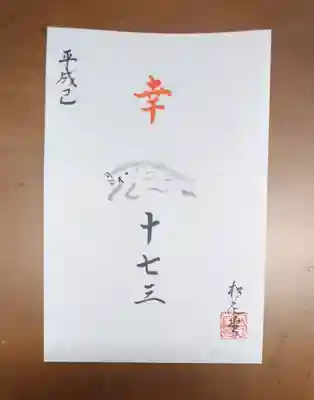 平成己
幸
十七三